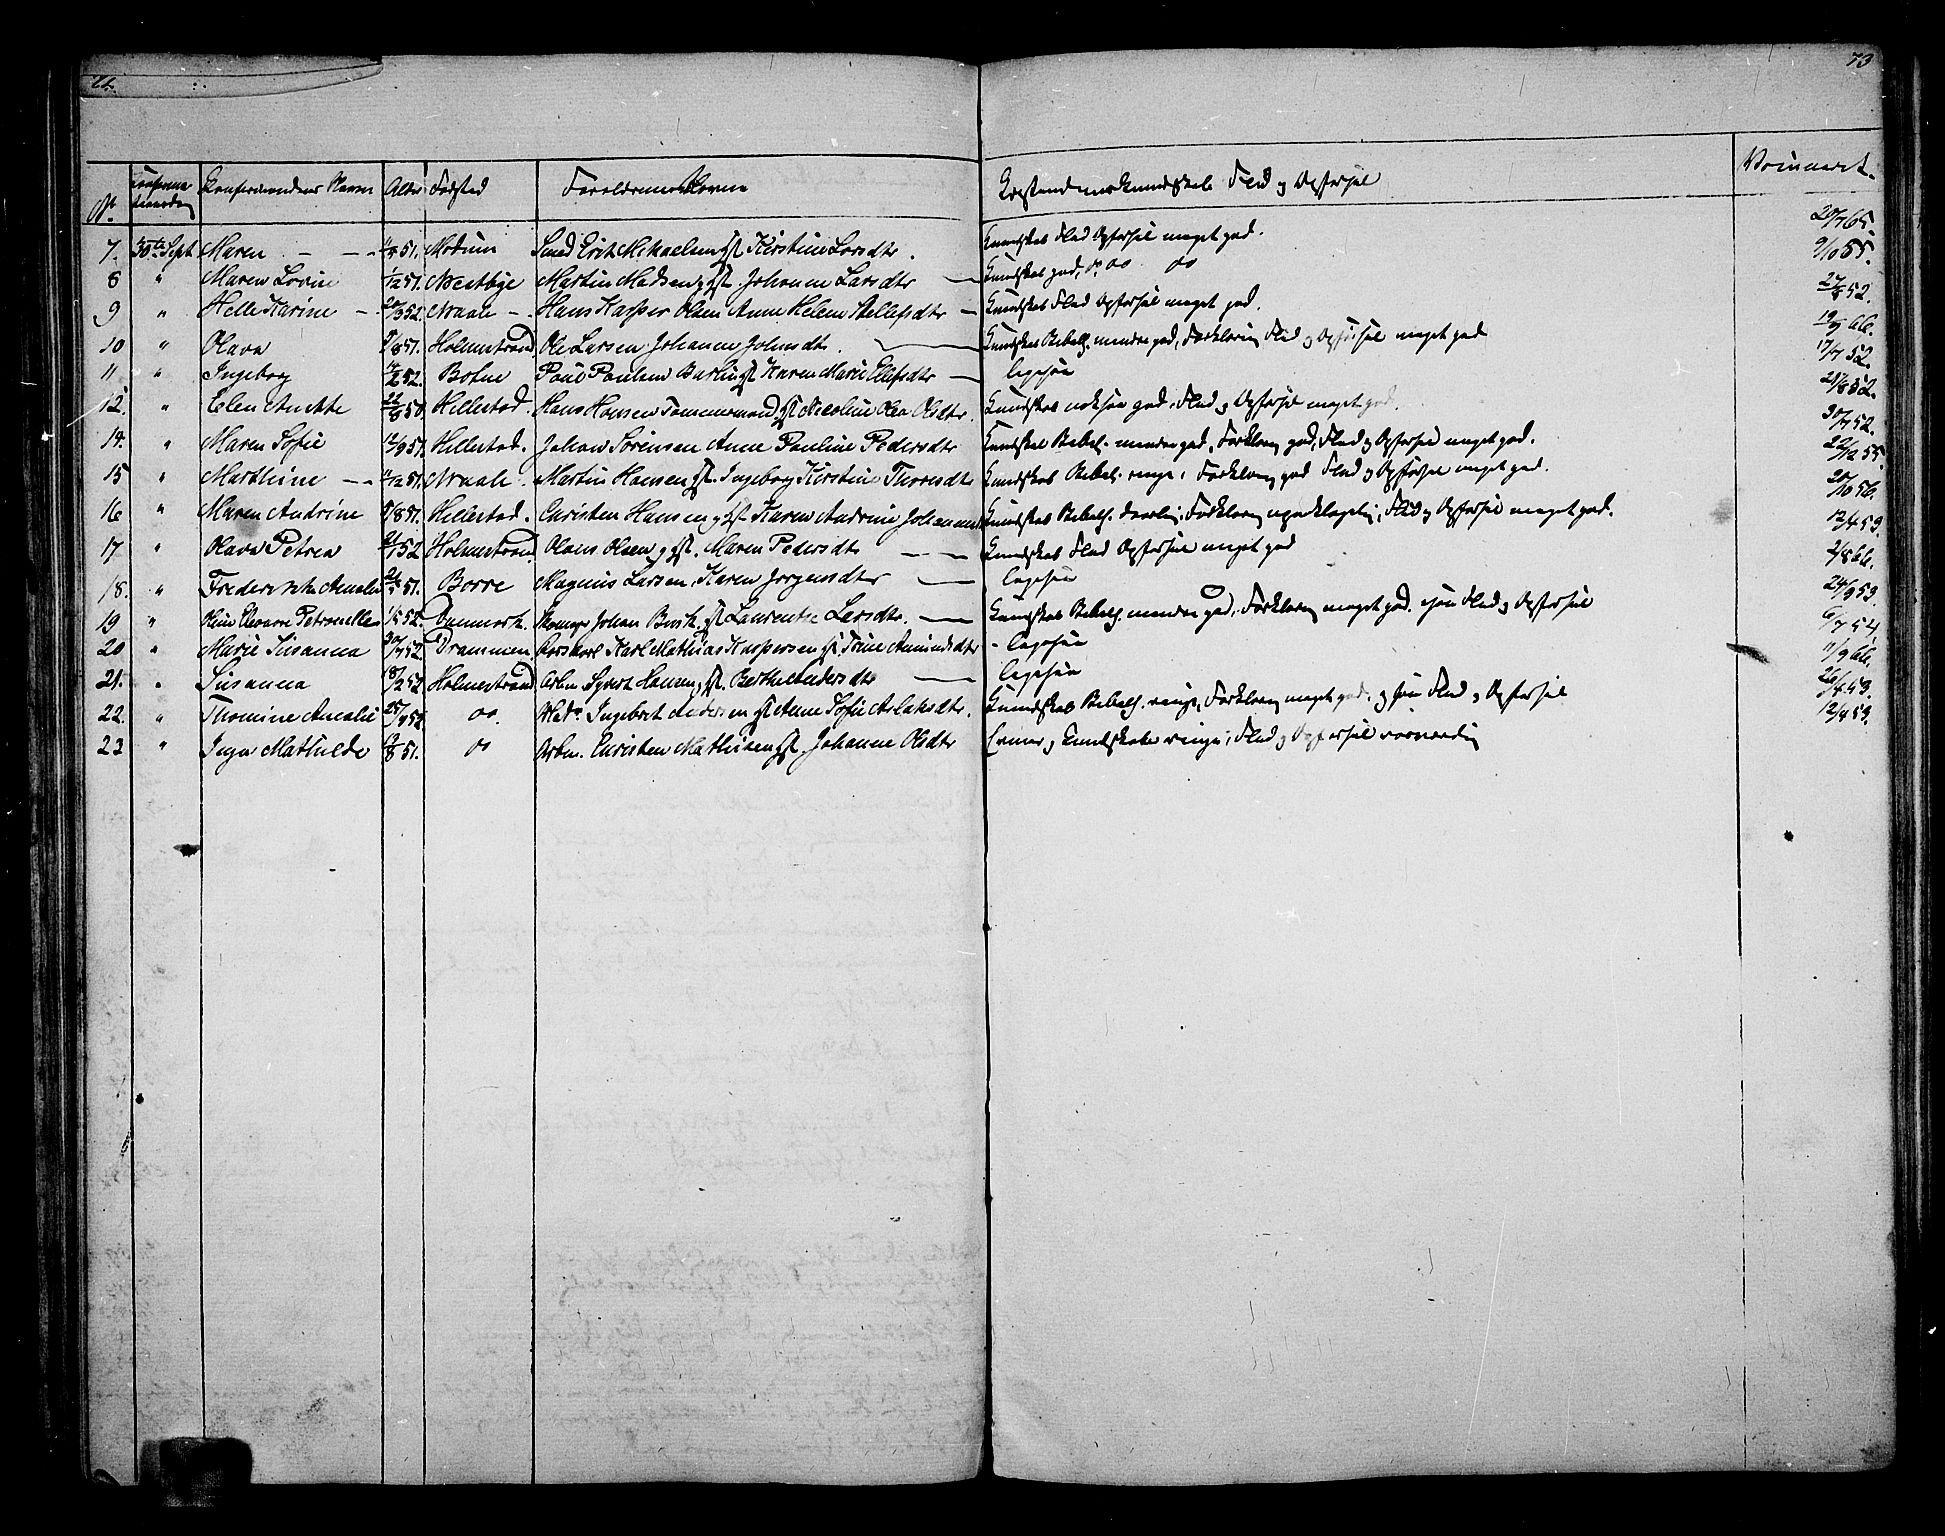 73
No. Konfirmationsdag Konfirmandens Navn Alder Fødsted Forældrenes Navne Kristendomskundskab Flid og Opførsel Vaccineret.
7. 30te Sept Maren 51. Modum Smed Erik Mikaelsen gst Kirstine Larsdtr. Kundskab Flid Opførsel meget god. 20/7 65.
8 " Maren Lovise 1/12 51. Nestbye Martin Madsen gst. Johanne Larsdtr Kundskab god, do do do 9/10 55.
9 " Helle Karine 3 52. Vaale Hans Kasper Olsen Anne Helene Stellefsdtr Kundskab Flid Opførsel meget god. 27/8 52.
10 " Olava /8 51. Holmestrand Ole Larsen Johanne Johnsdtr. Kundskab Bibelh. mindre god, Forklaring Flid og Opførsel meget god 19/9 66.
11 " Ingeborg /2 52. Botne Poul Poulsen gst Karen Marie Ellefsdtr ligesaa 17/7 52.
12. " Elen Anette 22/8 50 Hillestad. Hans Hansen Tømmermand gst Nicoline Olea Olsdtr. Kundskab noksaa god, Flid og Opførsel meget god. 21/8 52.
14. " Maren Sofie 12/9 51. Hillestad. Johan Sørensen Anne Pauline Pedersdtr Kundskab Bibelh. mindre god, Forklaring god, Flid og Opførsel meget god. 30/7 52.
15 " Marthine 11/12 51. Vaale Martin Hansen gst. Ingeborg Kirstine Thoresdtr Kundskab Bibelh. ringe, Forklaring god Flid og Opførsel meget god. 22/12 55.
16 " Maren Andrine /8 51. Hillestad. Christen Hansen gst Karen Andrine Kundskab Bibelh. daarlig, Forklaring Flid og Opførsel meget god. 20/10 56.
17 " Olava Petrea 52 Holmestrand Olaus Olsen gst. Maren Pedersdtr Kundskab Flid Opførsel meget god 12/4 53.
18. " Frederikke Amalie 51. Borre Magnus Larsen, Karen Jørgensdtr ligesaa 2/8 66.
19 " Eleonore Petronelle 1/5 52. Danmark. Skomager Johan Busk, gst Laurentze Larsdtr. Kundskab Bibelh. mindre god, Forklaring meget god. Flid og Opførsel 24/9 53.
20 " Marie Susanna 30/7 52 Drammen Karl Mathias Kaspersen gst. Trine Amundsdtr - ligesaa 6/7 54
21. " Susanna 52 Holmestrand Arbm Syvert Hansen gst. Berthe Andersdtr ligesaa 11/9 66.
22. " Thomine Amalie do. Ingebret Andersen gst Anne Sofie Aslaksdtr. Kundskab Bibelh. ringe, Forklaring meget god, Flid og Opførsel 26/4 53.
23 " Inga Mathilde /8 51. do Arbm. Christen Mathisen gst. Johanne Olsdtr Evner og Kundskaber ringe; Flid og Opførsel 12/4 53.